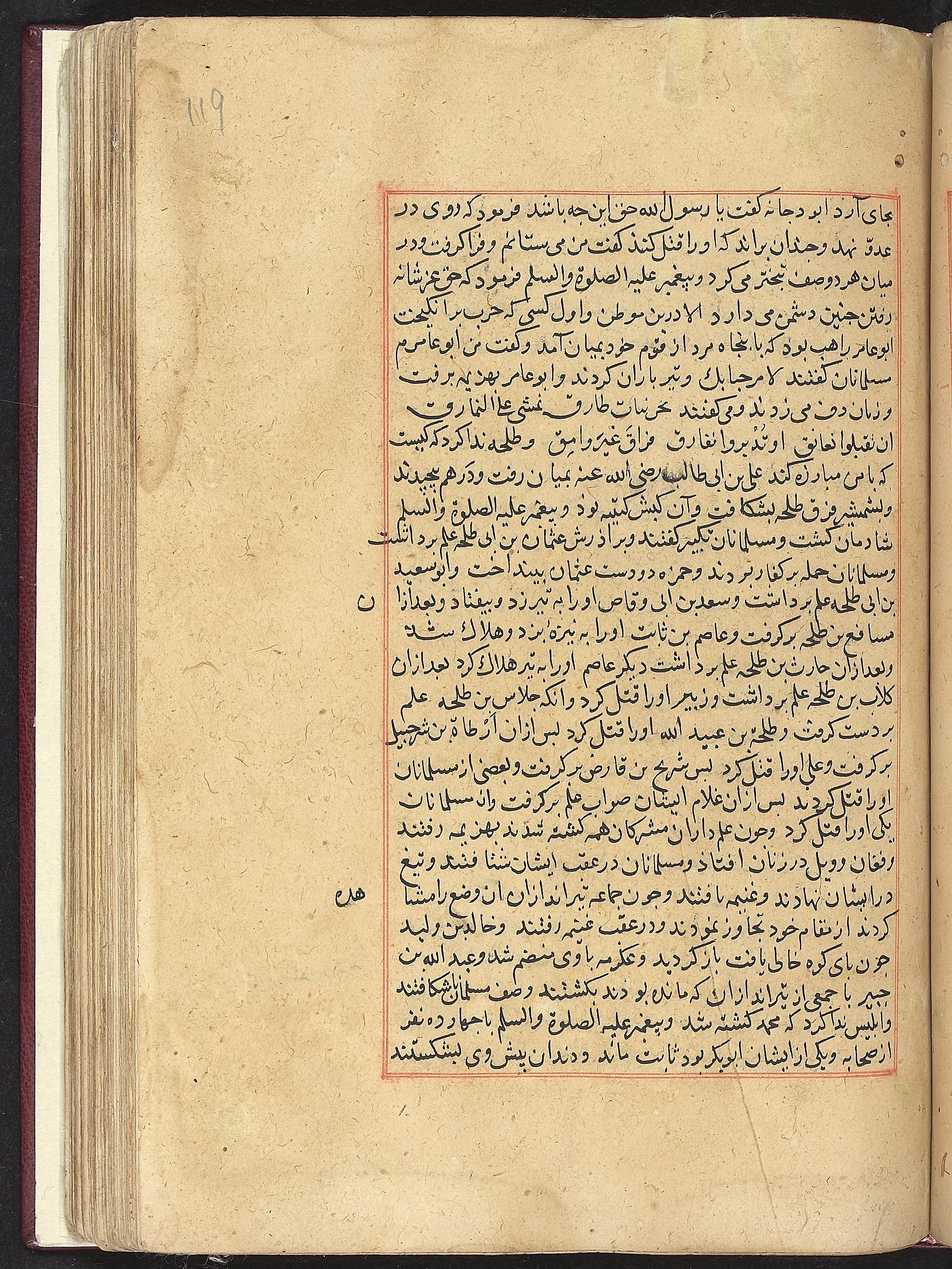 119
بجای آرد ابو دجانه کفت یا رسول الله حق این جه باشد فرمود که روی در
عدوّ نهد وجندان براند که اورا قتل کنند کفت من می ستانم وفرا کرفت ودر
میان هر دو صف تبختر می کرد وپیغمبر علیه الصلوة والسلم فرمود که حق عز شانه
رفتن جنین دشمن می دارد الا درین موطن واول کسی که حرب برانکیخت
ابو عامر راهب بود که با پنجاه مرد از قوم خود بمیان آمد وکفت من ابو عامرم
مسلمانان کفتند لا مرحبا بك وتیر باران کردند وابو عامر بهزیمه برفت
وزنان دف می زدند ومی کفتند نحن بنات طارق نمشی علی النمارق
ان تقبلوا نعانق او تُدْبروا نفارق فراقَ غیرَ وامِق وطلحه ندا کرد که کیست
که با من مبارزه کند علی بن ابی طالب رضی الله عنه بمیان رفت ودرهم پیچیدند
وبشمشیر فرق طلحه بشکافت وآن کبش کتیبه بوذ وپیغمبر علیه الصلوة والسلم
شادمان کشت ومسلمانان تکبیر کفتند وبراذرش عثمان بن ابی طلحه علم برداشت
ومسلمانان حمله بر کفار بردند وحمزه دو دست عثمان بینداخت وابو سعید
بن ابی طلحه علم برداشت وسعد بن ابی وقاص اورا به تیر زد وبیفتاد وبعد ازا
ن
مسافع بن طلحه بر کرفت وعاصم بن ثابت اورا به نیزه بزد وهلاك شد
وبعد ازان حارث بن طلحه علم برداشت دیکر عاصم اورا به تیر هلاك کرد بعد ازان
کلاب بن طلحه علم برداشت وزبیر اورا قتل کرد وانکه جلاس بن طلحه علم
بر دست کرفت وطلحة بن عبید الله اورا قتل کرد بس ازان اَرْطاة بن شرحبیل
بر کرفت وعلی اورا قتل کرد بس شریح بن قارض بر کرفت وبعضی از مسلمانان
اورا قتل کردند بس ازان غلام ایشان صواب علم بر کرفت وان مسلمانان
یکی اورا قتل کرد وجون علم داران مشرکان همه کشته شدند بهزیمه رفتند
وفغان وویل در زنان افتاذ ومسلمانان در عقب ایشان شتافتند وتیغ
در ایشان نهادند وغنیمه یافتند وجون جماعه تیر اندازان ان وضع را مشا
هده
کردند از مقام خود تجاوز نمودند ودر عقب غنیمه رفتند وخالد بن ولید
جون بای کوه خالی یافت باز کردید وعکرمه با وی منضم شد وعبد الله بن
جبیر با جمعی از تیر اندازان که مانده بودند بکشتند وصف مسلمانان بشکافتند
وابلیس ندا کرد که محمد کشته شد وپیغمبر علیه الصلوة والسلم با جهارده نفر
از صحابه ویکی از ایشان ابو بکر بود ثابت ماند ودندان پیش وی بشکستند